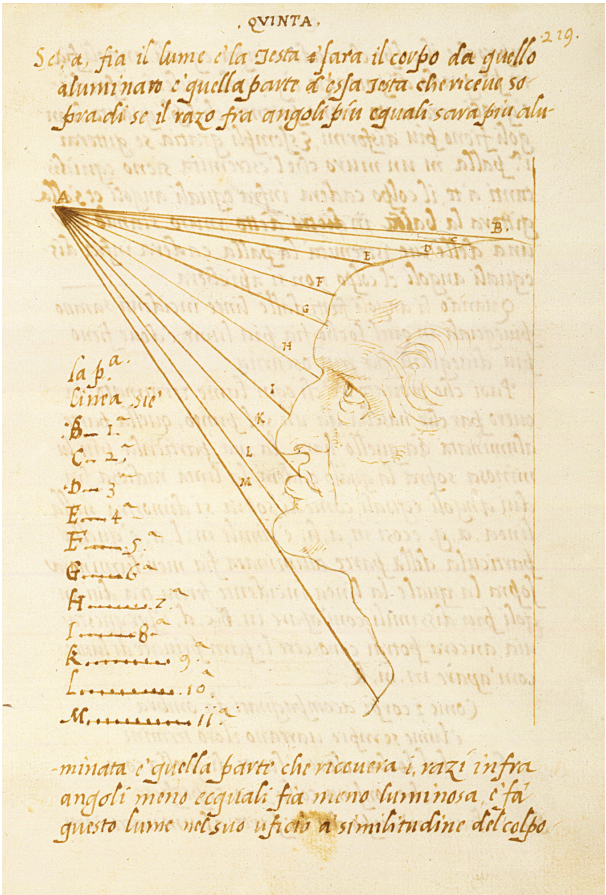 QVINTA.
219.
Se, a, fia il lume e la Testa sara il corpo da quello
aluminato e quella parte d essa Testa che riceve so
pra di se il razo fra angoli piu equali sara piu alu-
A
B
C
D
E
F
G
H
I
K
L
M
la p.a
linea sie
B 1.a
C 2.a
D 3
E 4.a
F 5.a
G 6.a
H 7.a
I 8.a
K 9.a
L 10.a
M 11.a
-minata e quella parte che ricevera i, razi infra
angoli meno ecquali fia meno luminosa, e fa
questo lume nel suo uficio a similitudine del colpo